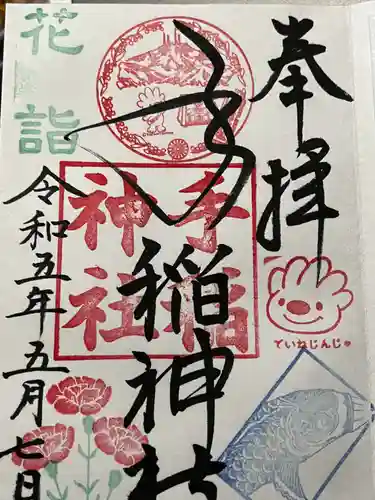 奉拝
手稲神社
手稲
神社
ていねじんじゃ
花詣
令和五年五月七日